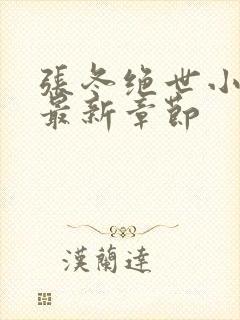 張冬绝世小
最新章節
漢蘭達